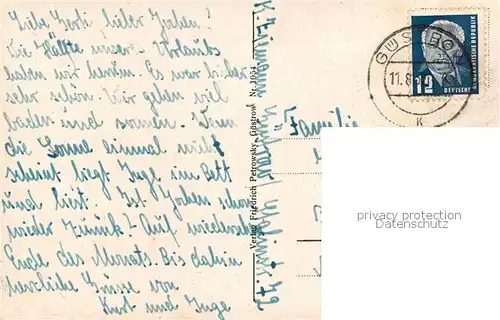 Liebe Gerti, lieber Jochen!
Die Hälfte unseres Urlaubs
haben wir herum. Es war bisher
sehr schön. Wir gehen viel
baden und sonnen. Wenn
die Sonne einmal nicht
scheint liegt Inge im Bett
und liest. Ist Jochen schon
wieder zurück? Auf wiedersehen
Ende des Monats. Bis dahin
herzliche Grüsse von
Kurt und Inge
Verlag Friedrich Petrowsky, Güstrow
Familie
GÜSTROW
11.8
K
12
DEUTSCHE
DEMOKRATISCHE REPUBLIK
privacy protection
Datenschutz